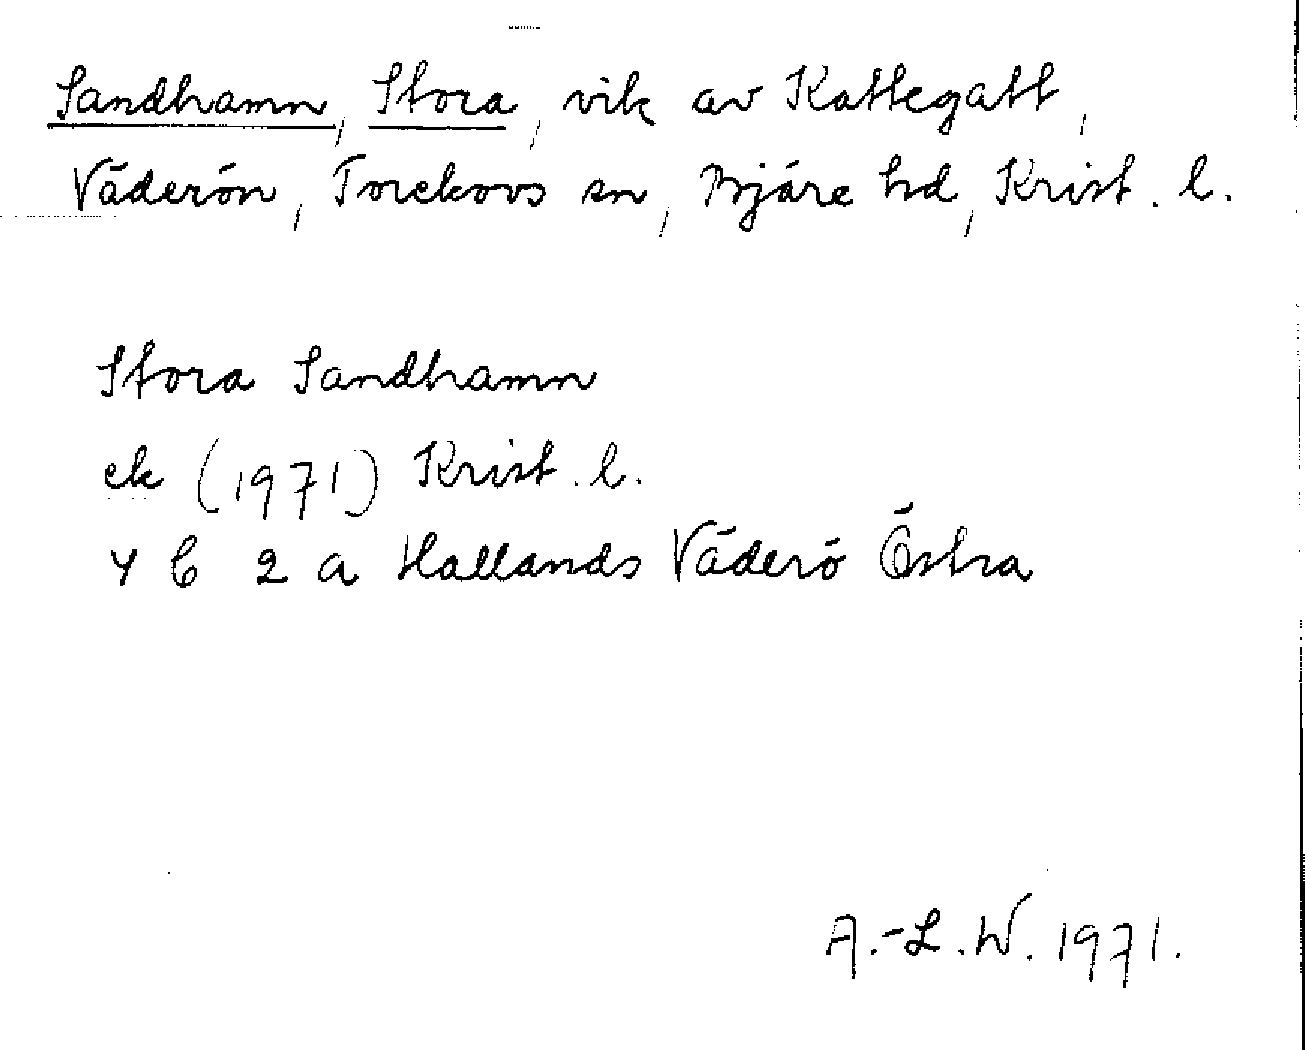 Sandhamn, Stora, vik av Kattegatt,
Väderön, Torekovs sn, Bjäre hd, Krist. l.
Stora Sandhamn
ek (1971) Krist. l.
4 C 2 a Hallands Väderö Östra
A.-L.W. 1971.